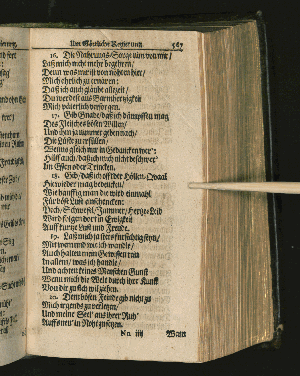 Der Göttliche Regierung. 567
16. Die Nahrungs-Sorge nim von mir/
Laß mich nicht mehr begehren/
Denn was mir ist von nöthen hier/
Mich ehrlich zu ernären:
Daß ich auch glaube allezeit/
Du werdest aus Barmhertzigkeit
Mich väterlich versorgen.
17. Gib Gnade/ daß ich dämpffen mag
Des Fleisches bösen Willen/
Und ihm ja nimmer geben nach/
Die Lüste zu erfüllen/
Wenns gleich nur in Gedancken wer:
Hilff auch/ daß ich mich nicht beschwer
In Essen oder Trincken.
18. Gib/ daß ich offt der Höllen-Quaal
Hie wieder mag bedencken/
Wie häuffig man die wird einmahl
Für böse Lust einschencken:
Pech/ Schwefel/ Jammer/ Hertze-Leid
Wird folgen dort in Ewigkeit
Auff kurtze Lust und Freude.
19. Laß mich ja stets fürsichtig seyn/
Mit wem und wie ich wandle/
Auch halten mein Gewissen rein
In allem/ was ich handle/
Und achten keines Menschen Gunst
Wenn mich die Welt durch ihre Kunst
Von dir zu sich wil ziehen.
20. Dem bösen Feinde gib nicht zu
Mich irgends zu verletzen/
Und meine Seel' aus ihrer Ruh'
Auff einst in Noht zusetzen.
Nn iiij Wenn